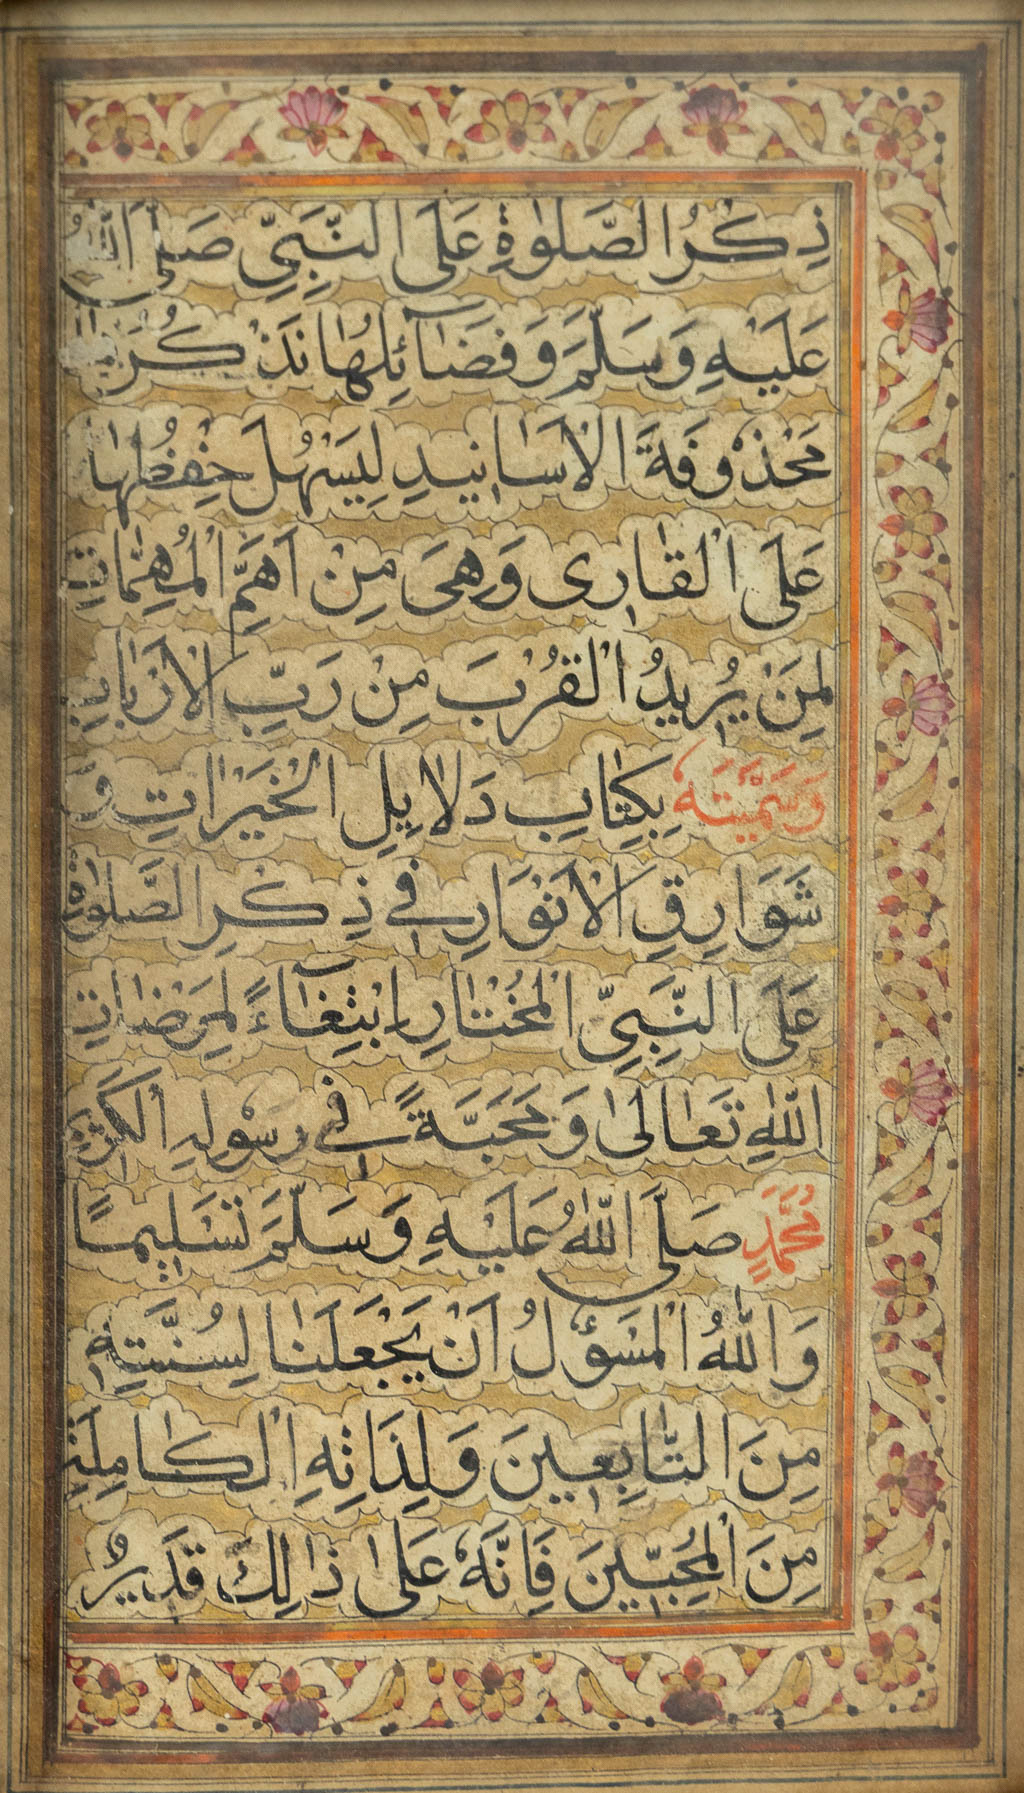 ذِكْرُ الصَّلوٰةِ عَلَى النَّبِيِّ صَلَّى اللّٰهُ
عَلَيْهِ وَسَلَّمَ وَفَضَآئِلِهَا نَذْكُرُ
مَحْذُوفَةَ الْاَسَانِيدِ لِيَسْهُلَ حِفْظُهَا
عَلَى الْقَارِى وَهِىَ مِنْ اَهَمِّ الْمُهِمَّاتِ
لِمَنْ يُرِيدُ الْقُرْبَ مِنْ رَبِّ الْاَرْبَابِ
وَسَمَّيْتُهُ بِكِتَابِ دَلَايِلِ الْخَيْرَاتِ وَ
شَوَارِقِ الْاَنْوَارِ فِى ذِكْرِ الصَّلوٰةِ
عَلَى النَّبِيِّ الْمُخْتَارِ ابْتِغَآءً لِمَرْضَاتِ
اللّٰهِ تَعَالٰى وَمَحَبَّةً فِى رَسُولِهِ الْكَرِيمِ
مُحَمَّدٍ صَلَّى اللّٰهُ عَلَيْهِ وَسَلَّمَ تَسْلِيمًا
وَاللّٰهُ الْمَسْؤُلُ اَنْ يَجْعَلَنَا لِسُنَّتِهِ
مِنَ التَّابِعِينَ وَلِذَاتِهِ الْكَامِلَةِ
مِنَ الْمُحِبِّينَ فَاِنَّهُ عَلٰى ذَالِكَ قَدِيرٌ